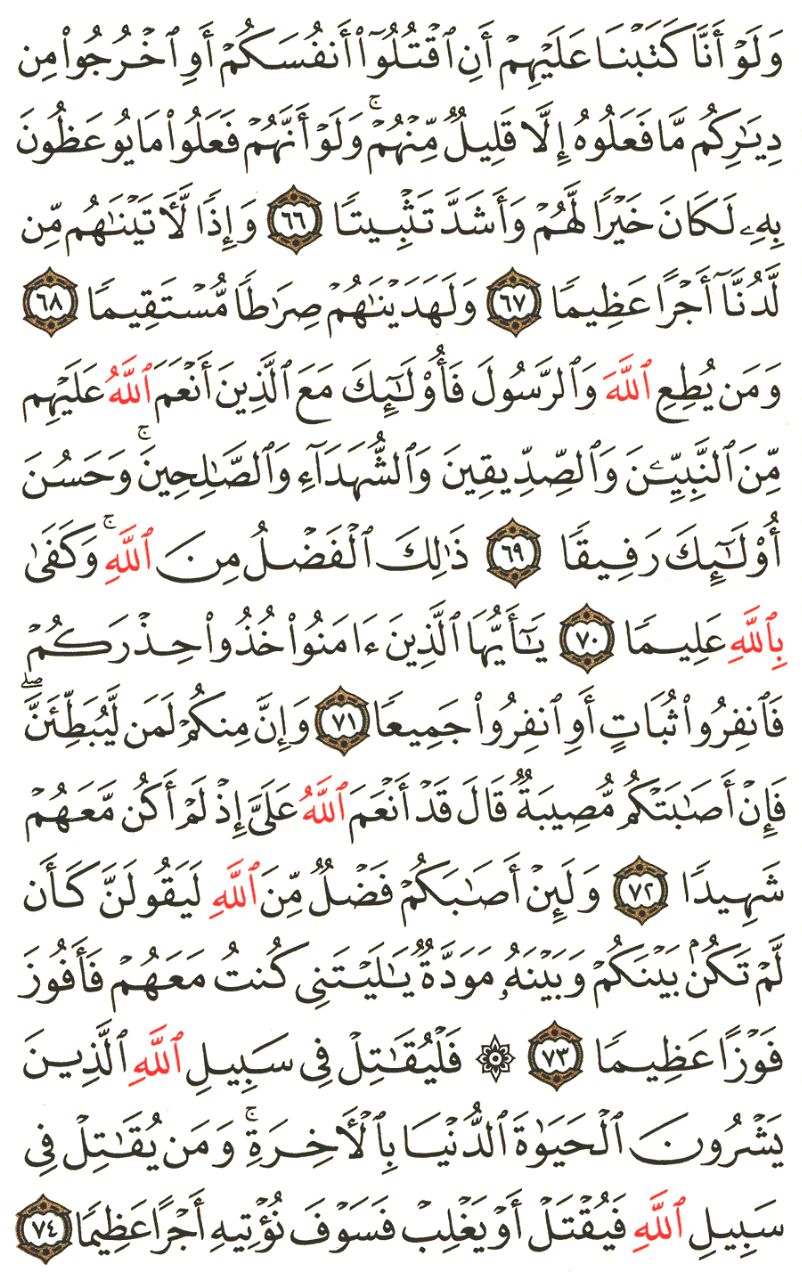 وَلَوْ أَنَّا كَتَبْنَا عَلَيْهِمْ أَنِ ٱقْتُلُوٓا۟ أَنفُسَكُمْ أَوِ ٱخْرُجُوا۟ مِن
دِيَـٰرِكُم مَّا فَعَلُوهُ إِلَّا قَلِيلٌ مِّنْهُمْ ۚ وَلَوْ أَنَّهُمْ فَعَلُوا۟ مَا يُوعَظُونَ
بِهِۦ لَكَانَ خَيْرًا لَّهُمْ وَأَشَدَّ تَثْبِيتًا ٦٦ وَإِذًا لَّـَٔاتَيْنَـٰهُم مِّن
لَّدُنَّآ أَجْرًا عَظِيمًا ٦٧ وَلَهَدَيْنَـٰهُمْ صِرَٰطًا مُّسْتَقِيمًا ٦٨
وَمَن يُطِعِ ٱللَّهَ وَٱلرَّسُولَ فَأُو۟لَـٰٓئِكَ مَعَ ٱلَّذِينَ أَنْعَمَ ٱللَّهُ عَلَيْهِم
مِّنَ ٱلنَّبِيِّـۧنَ وَٱلصِّدِّيقِينَ وَٱلشُّهَدَآءِ وَٱلصَّـٰلِحِينَ ۚ وَحَسُنَ
أُو۟لَـٰٓئِكَ رَفِيقًا ٦٩ ذَٰلِكَ ٱلْفَضْلُ مِنَ ٱللَّهِ ۚ وَكَفَىٰ
بِٱللَّهِ عَلِيمًا ٧٠ يَـٰٓأَيُّهَا ٱلَّذِينَ ءَامَنُوا۟ خُذُوا۟ حِذْرَكُمْ
فَٱنفِرُوا۟ ثُبَاتٍ أَوِ ٱنفِرُوا۟ جَمِيعًا ٧١ وَإِنَّ مِنكُمْ لَمَن لَّيُبَطِّئَنَّ ۖ
فَإِنْ أَصَـٰبَتْكُم مُّصِيبَةٌ قَالَ قَدْ أَنْعَمَ ٱللَّهُ عَلَىَّ إِذْ لَمْ أَكُن مَّعَهُمْ
شَهِيدًا ٧٢ وَلَئِنْ أَصَـٰبَكُمْ فَضْلٌ مِّنَ ٱللَّهِ لَيَقُولَنَّ كَأَن
لَّمْ تَكُنۢ بَيْنَكُمْ وَبَيْنَهُۥ مَوَدَّةٌ يَـٰلَيْتَنِى كُنتُ مَعَهُمْ فَأَفُوزَ
فَوْزًا عَظِيمًا ٧٣ ۞ فَلْيُقَـٰتِلْ فِى سَبِيلِ ٱللَّهِ ٱلَّذِينَ
يَشْرُونَ ٱلْحَيَوٰةَ ٱلدُّنْيَا بِٱلْـَٔاخِرَةِ ۚ وَمَن يُقَـٰتِلْ فِى
سَبِيلِ ٱللَّهِ فَيُقْتَلْ أَوْ يَغْلِبْ فَسَوْفَ نُؤْتِيهِ أَجْرًا عَظِيمًا ٧٤